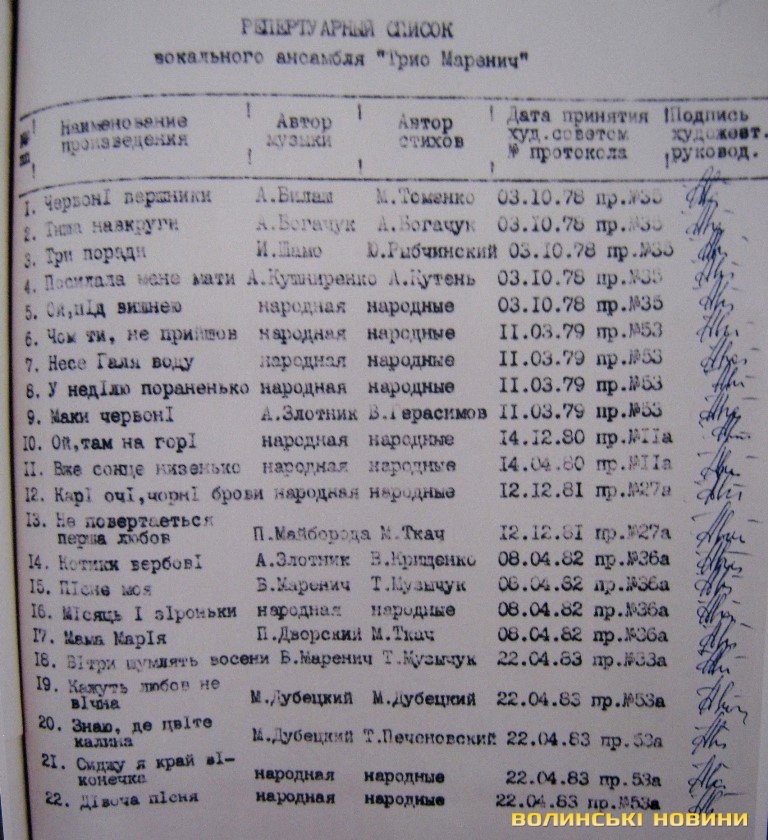 РЕПЕРТУАРНЫЙ СПИСОК
вокального ансамбля "Трио Маренич"
Наименование произведения ! Автор музыки ! Автор стихов ! Дата принятия худ.советом № протокола ! Подпись художест. руковод.
1. ЧервонI вершники А.Билаш М.Томенко 03.10.78 пр.№35
2. Тиша навкруги А.Богачук А.Богачук 03.10.78 пр.№35
3. Три поради И.Шамо Ю.Рыбчинский 03.10.78 пр.№35
4. Посилала мене мати А.Кушниренко А.Кутень 03.10.78 пр.№35
5. Ой,пIд вишнею народная народные 03.10.78 пр.№35
6. Чом ти, не прийшов народная народные 11.03.79 пр.№53
7. Несе Галя воду народная народные 11.03.79 пр.№53
8. У недIлю пораненько народная народные 11.03.79 пр.№53
9. Маки червонI А.Злотник В.Герасимов 11.03.79 пр.№53
10. Ой,там на горI народная народные 14.12.80 пр.№11а
11. Вже сонце низенько народная народные 14.04.80 пр.№11а
12. КарI очI,чорнI брови народная народные 12.12.81 пр.№27а
13. Не повертаеться
перша любов П.Майборода М.Ткач 12.12.81 пр.№27а
14. Котики вербовI А.Злотник В.Крищенко 08.04.82 пр.№36а
15. ПIсне моя В.Маренич Т.Музычук 08.04.82 пр.№36а
16. МIсяць I зIроньки народная народные 08.04.82 пр.№36а
17. Мама МарIя П.Дворский М.Ткач 08.04.82 пр.№36а
18. ВIтри шумлять восени В.Маренич Т.Музычук 22.04.83 пр.№53а
19. Кажуть любов не
вIчна М.Дубецкий М.Дубецкий 22.04.83 пр.№53а
20. Знаю, де цвIте
калина М.Дубецкий Т.Печоновский 22.04.83 пр.53а
21. Сиджу я край вI-
конечка народная народные 22.04.83 пр.53а
22. ДIвоча пIсня народная народные 22.04.83 пр.№53а
ВОЛИНСЬКІ НОВИНИ